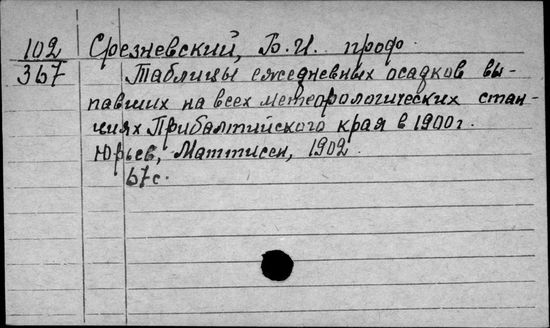 102 Срезневский, Б.И. проф.
367 Таблицы ежедневных осадков вы-
павших на всех метеорологических стан-
циях Прибалтийского края в 1900 г.
Юрьев, Маттисен, 1902.
67 с.